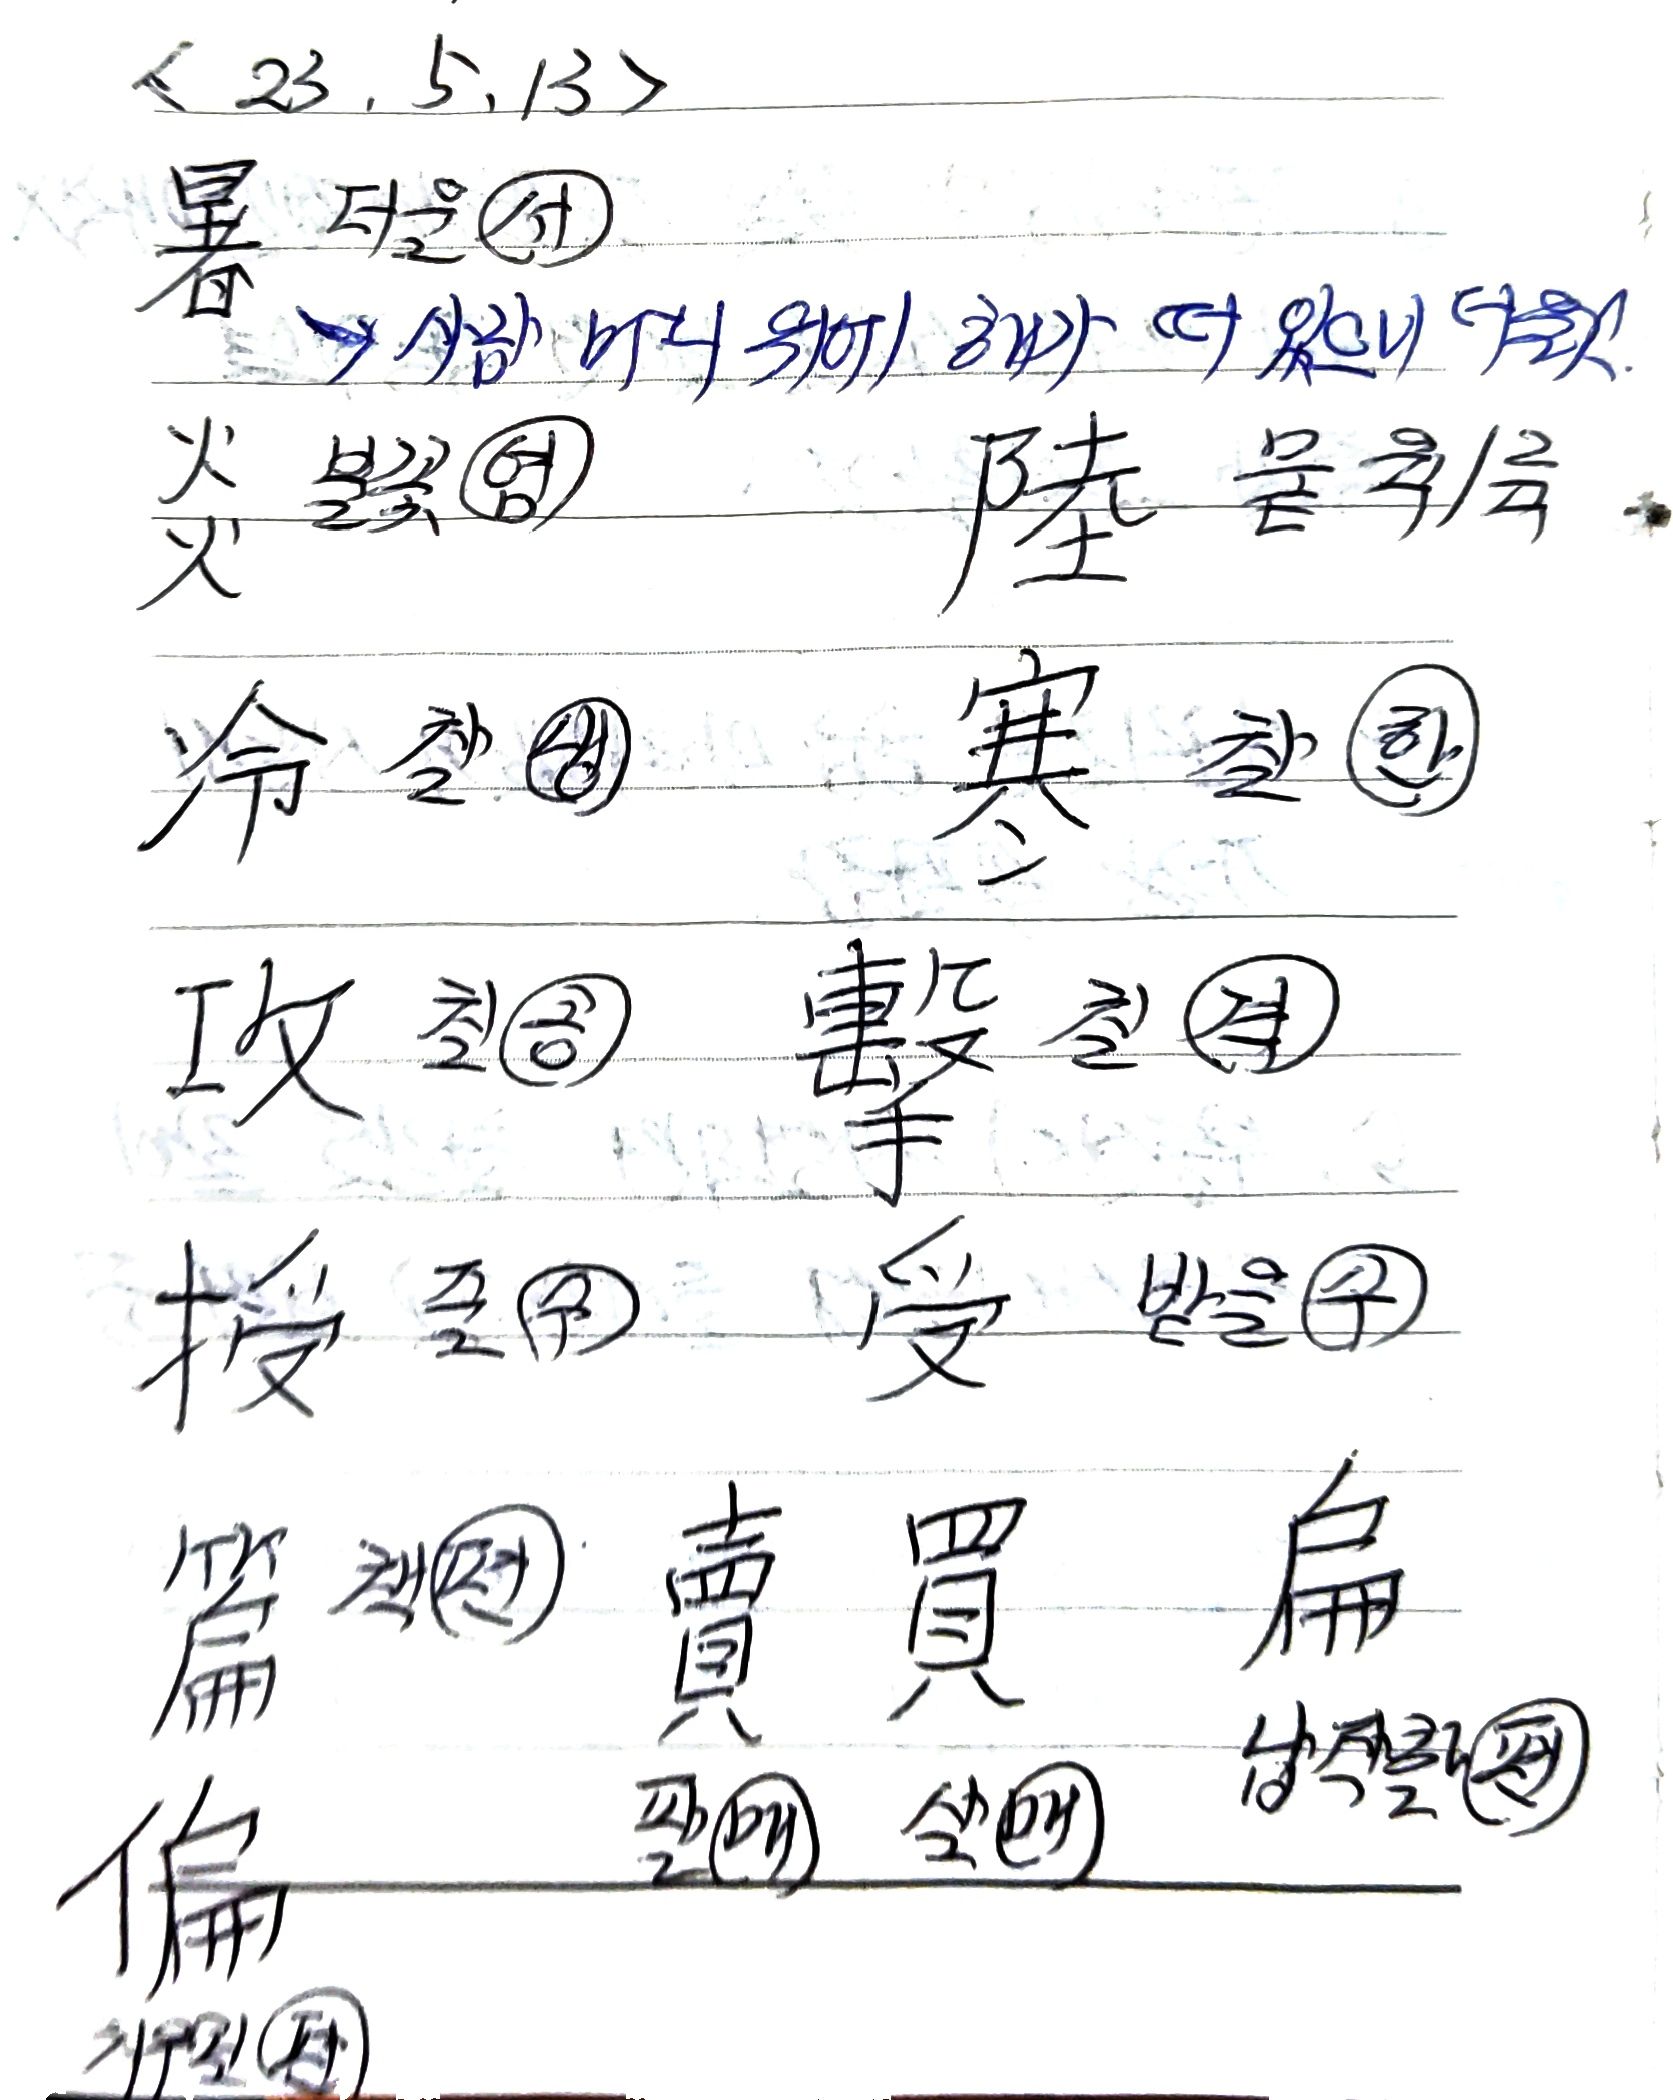 < 23. 5. 13 >
暑 더울 서
→ 사람 머리 위에 해가 떠 있으니 더울
炎 불꽃 염 陸 뭍 육/륙
冷 찰 냉 寒 찰 한
攻 칠 공 擊 칠 격
授 줄 수 受 받을 수
篇 책 편 賣 買 扁
팔 매 살 매 납작할 편
偏
치우칠 편